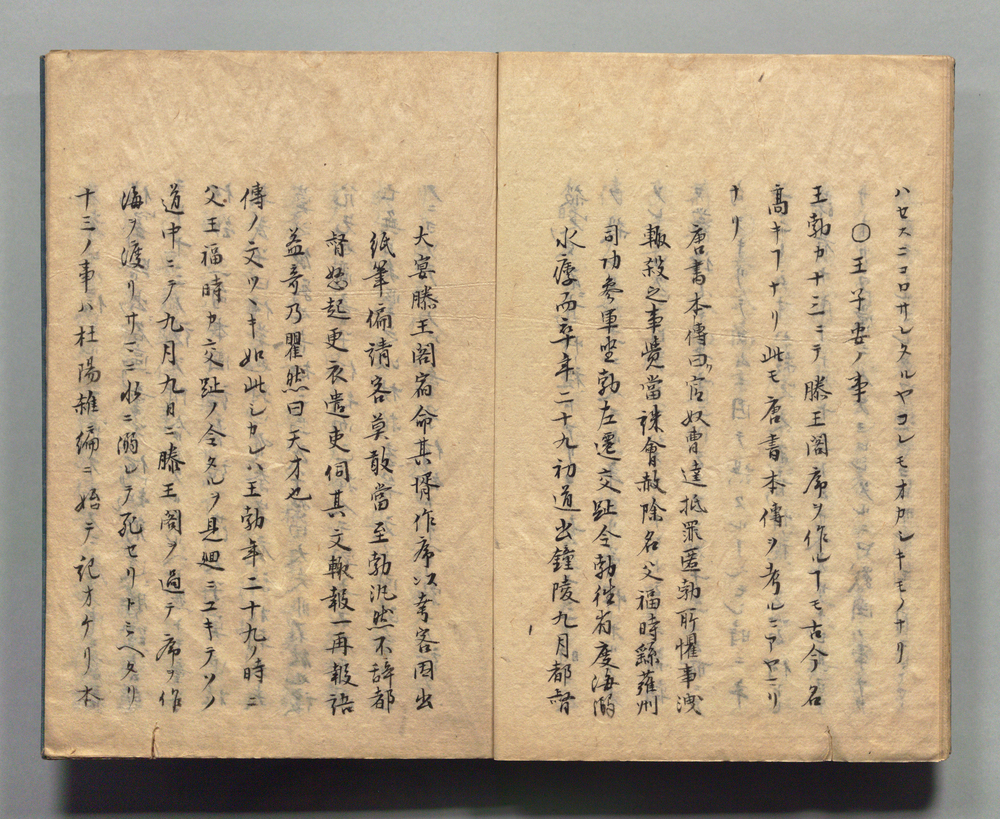 ハセスニコロサレタルヤコレモオカシキモノナリ
〇王子安ノ事
王勃カ十三ニテ滕王閣序ヲ作レヿモ古今名
高キヿナリ此モ唐書本傳ヲ考ルニアヤマリ
ナリ
唐書本傳曰官奴曹達抵罪匿勃所懼事洩
輙殺之事覺當誅會赦除名父福畤繇雍州
司功參軍坐勃左遷交趾令勃徃省度海溺
水痵而卒年二十九初道出鐘陵九月都督
大宴滕王閣宿命其壻作序以夸客因出
紙筆徧請客莫敢當至勃汎然不辞都
督怒起更衣遣吏伺其文輙報一再報語
益奇乃矍然曰天才也
傳ノ文ツヽキ如此シカレハ王勃年二十九ノ時ニ
父王福時カ交趾ノ令タルヲ見廻ニユキテソノ
道中ニテ九月九日ニ滕王閣ヲ過テ序ヲ作
海ヲ渡リサマニ水ニ溺レテ死セリトミヘタリ
十三ノ事ハ杜陽雑編ニ始テ記オケリ本